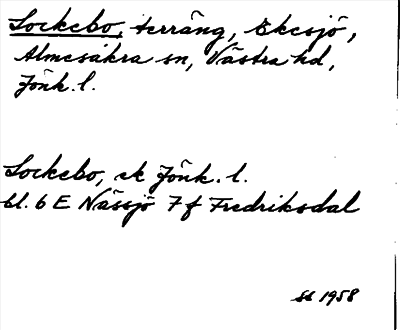 Sockebo, terräng, Ekesjö,
Almesåkra sn, Västra hd,
Jönk. l.
Sockebo, ek Jönk. l.
bl. 6 E Nässjö 7 f Fredriksdal
SS 1958